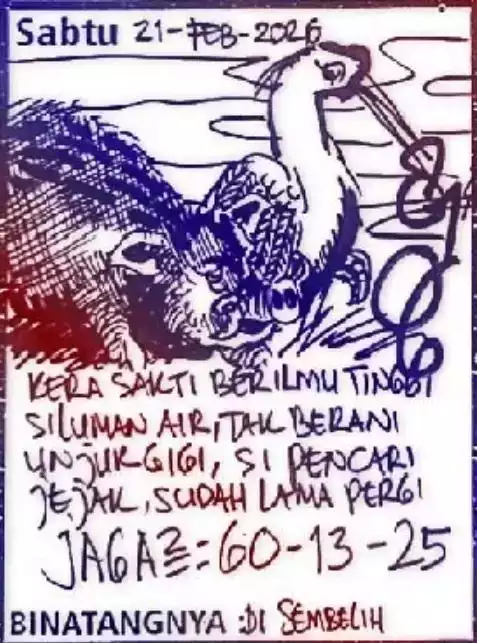 Sabtu 21-FEB-2026
KERA SAKTI BERILMU TINGGI
SILUMAN AIR, TAK BERANI
UNJUK GIGI, SI PENCARI
JEJAK, SUDAH LAMA PERGI
JAGA2 =: 60-13-25
BINATANGNYA : DI SEMBELIH